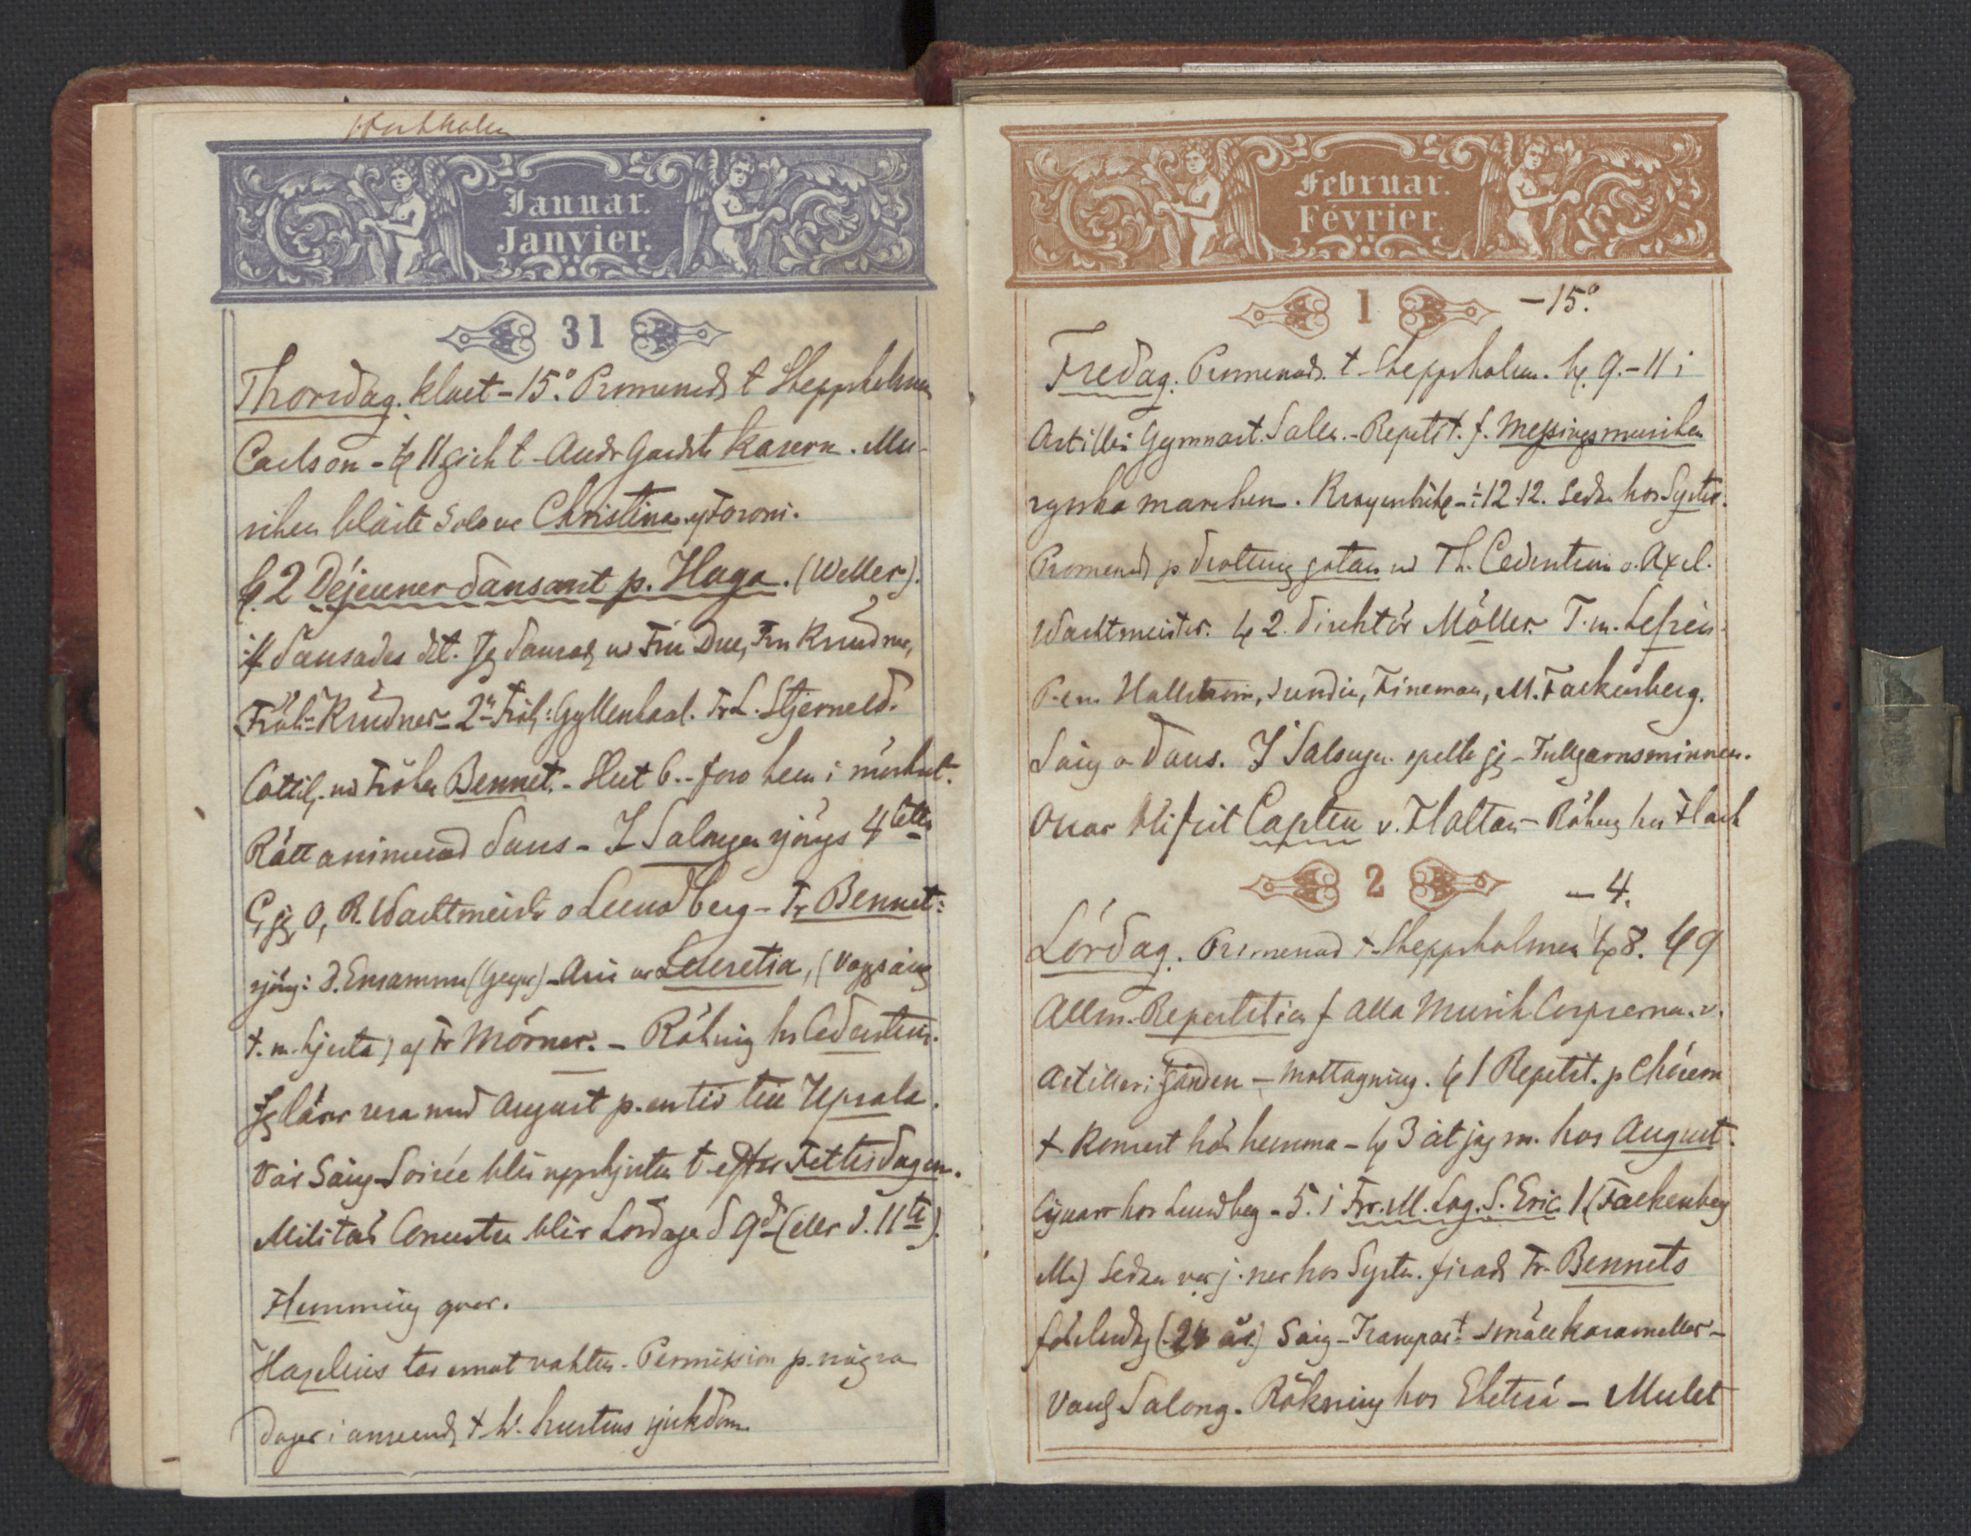 Stockholm
Januar.
Janvier.
31
Thorsdag. klart – 15.° Promenad t Skeppsholmen
Carlson – kl 11 gick t Andr Gardets Kasern. Mu-
siken blåste Solo ur Christina af Foroni.
kl. 2 Déjeuner dansant p. Haga. (Weller).
dansades det. Jg dansade m Fru Due, Fru Krudner,
Fröh- Krudner – 2n Fröh: Gyllenhaal. Fr L. Stjerneld.
Cottilj. m Fröken Bennet. – Slut 6. – foro hem i mörkret.
Rätt animerad dans – I Salongen sjöngs 4tetter
G, jg, O, R. Wachtmeister o Lundberg – Fr Bennet:
sjöng: D. Ensamme (Geyer) – Aria ur Lucretia, (Vaggsång
t. m. hjerta) af Fr Mörner. – Rökning hs Cederström.
Jg lärer resa med August p. en tid till Upsala.
Vår Sång-Soirée blir uppskjuten t efter Fettisdagen.
Militär Concerten blir Lördagen d 9de (eller d. 11te).
Hemming qvar.
Hazelius tar emot vakten – Permission p. några
dagar i anseende t h. hustrus sjukdom.
Februar.
Février.
1 – 15.°
Fredag. Promenad. t. Skeppsholm. kl. 9. – 11 i
Artilleri Gymnast. Salen. – Repetit. f. Messingsmusiken
ryska marchen. Kragenbuhl – 12.12. Sedan hos Syster.
Promenad p drottninggatan m Th. Cederström o. Axel.
Wachtmeister. kl 2. direktör Möller. T. m. Lefrén.
P. em. Hallström, Sundin, Fineman, M. Falkenberg.
Sång o dans. I Salongen. spelte jg – Tullgarnsminnen.
Oscar Visit Capten v. Holten – Rökning hos Flach
2 – 4.
Lördag. Promenad t Skeppsholmen kl 8. kl 9
Allm. Repetition f alla Musik Corpserna. v.
Artillerigården – Mottagning. kl 1 Repetit. p Chören
t Konsert här hemma – kl 3 åt jag m. hos August.
Cigarr hos Lundberg – 5. i Frr. M. Log. S. Eric 1 (Falkenberg
M.) Sedan var j. ner hos Syster. firade Fr. Bennets
födelsedag (24 år) Sång – Transpart – Smällkarameller –
Vanl Salong. Rökning hos Ehrenkrå – Mulet